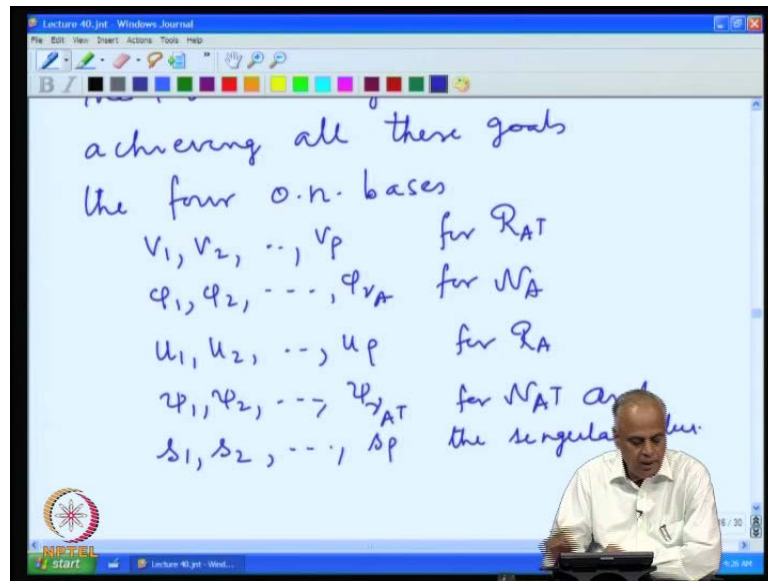 Lecture 40.jnt - Windows Journal
File Edit View Insert Actions Tools Help
B I
achieving all these goals
the four o.n. bases
v₁, v₂, .., vρ for R_Aᵀ
φ₁, φ₂, ---, φ_νA for N_A
u₁, u₂, .., uρ for R_A
ψ₁, ψ₂, ..., ψ_νAᵀ for N_Aᵀ and
s₁, s₂, ---, sρ the
NPTEL
start Lecture 40.jnt - Wind...
4:26 AM